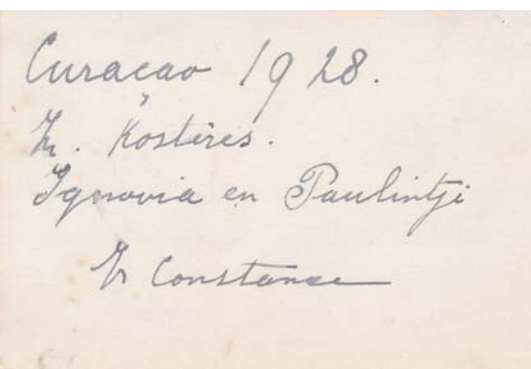 Curaçao 1928.
Zr. Kostères.
Ignovia en Paulintji
Zr Constance